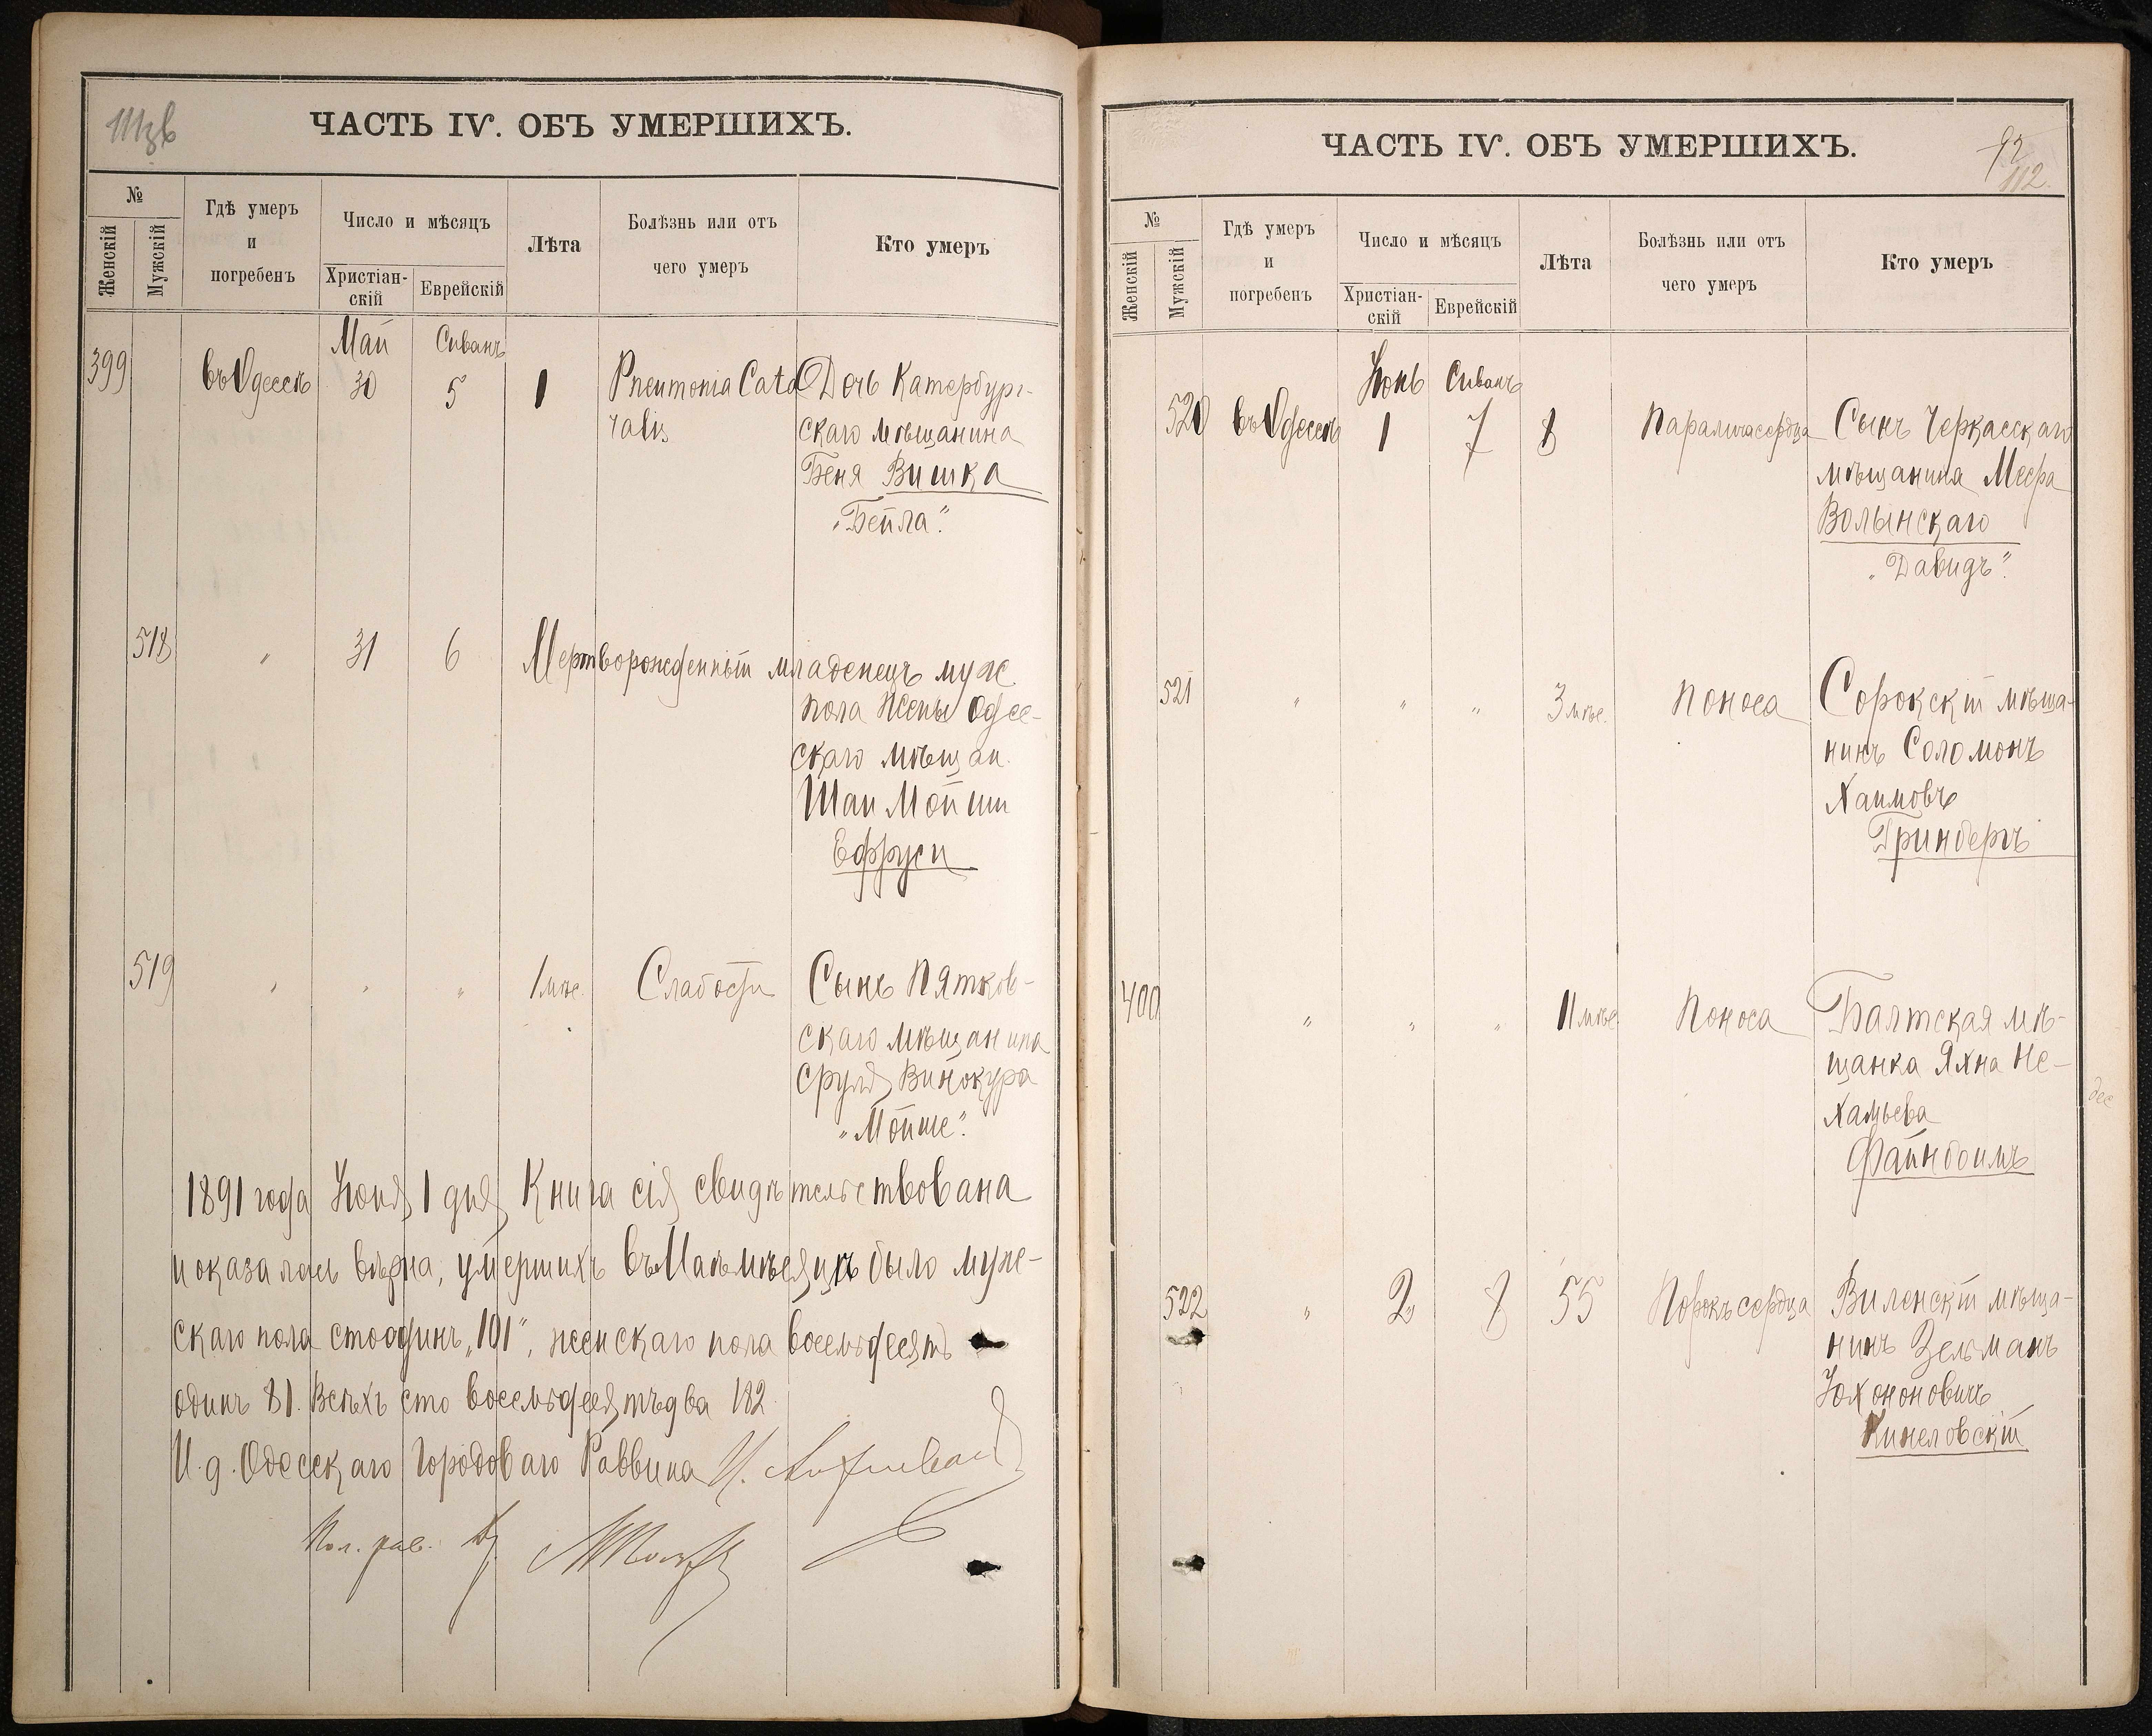 111 зв
ЧАСТЬ IV. ОБЪ УМЕРШИХЪ.
№
Женскій
Мужскій
Гдѣ умеръ
и
погребенъ
Число и мѣсяцъ
Христіан-
скій
Еврейскій
Лѣта
Болѣзнь или отъ
чего умеръ
Кто умеръ
Май Сиванъ
399 въ Одессѣ 30 5 1 Pneumonia Cata Дочь Катербург-
ralis скаго мѣщанина
Беня Вишка
„Бейла".
518 " 31 6 Мертворожденный младенецъ муж.
пола жены Одес-
скаго мѣщан.
Шаи Мойши
Ефруси
519 " " " 1 мѣс. Слабости Сынъ Пятков-
скаго мѣщанина
Сруля Винокура
„Мойше".
1891 года Іюня 1 дня Книга сія свидѣтельствована
и оказалась вѣрна, умершихъ въ Маѣ мѣсяцѣ было муже-
скаго пола сто одинъ „101", женскаго пола восемьдесятъ
одинъ 81. Всѣхъ сто восемьдесятъ два 182
И. д. Одесскаго Городоваго Раввина
ЧАСТЬ IV. ОБЪ УМЕРШИХЪ.
92
112.
№
Женскій
Мужскій
Гдѣ умеръ
и
погребенъ
Число и мѣсяцъ
Христіан-
скій
Еврейскій
Лѣта
Болѣзнь или отъ
чего умеръ
Кто умеръ
Іюнь Сиванъ
520 въ Одессѣ 1 7 8 Паралича сердца Сынъ Черкасскаго
мѣщанина Меера
Волынскаго
„Давидъ".
521 " " " 3 мѣс. Поноса Сорокскій мѣща-
нинъ Соломонъ
Хаимовъ
Гринбергъ
400 " " " 11 мѣс. Поноса Балтская мѣ-
щанка Яхна Не-
хамьева
Файнбоимъ
522 " 2 8 55 Порокъ сердца Виленскій мѣща-
нинъ Зельманъ
Іохононовичъ
Кинеловскій